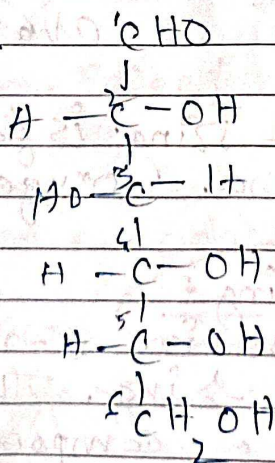 1CHO
H — 2C — OH
HO — 3C — H
H — 4C — OH
H — 5C — OH
6CH2OH